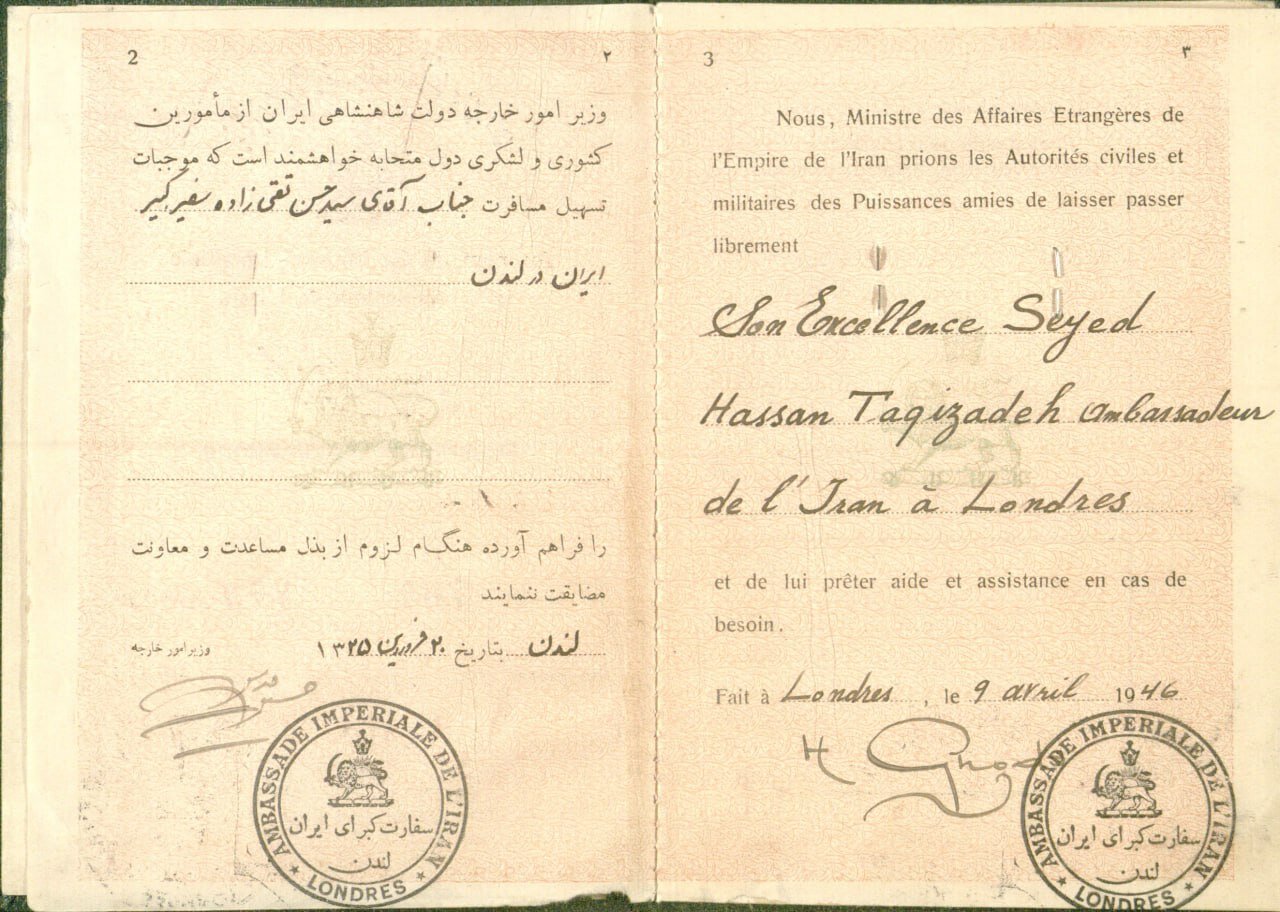 2
۲
وزیر امور خارجه دولت شاهنشاهی ایران از مأمورین
کشوری و لشکری دول متحابه خواهشمند است که موجبات
تسهیل مسافرت جناب آقای سید حسن تقی زاده سفیر کبیر
ایران در لندن
را فراهم آورده هنگام لزوم از بذل مساعدت و معاونت
مضایقت ننمایند
لندن بتاریخ ۲۰ فروردین ۱۳۲۵ وزیر امور خارجه
AMBASSADE IMPERIALE DE L'IRAN
سفارت کبرای ایران
لندن
LONDRES
3
۳
Nous, Ministre des Affaires Etrangères de
l'Empire de l'Iran prions les Autorités civiles et
militaires des Puissances amies de laisser passer
librement
Son Excellence Seyed
Hassan Taqizadeh Ambassadeur
de l'Iran à Londres
et de lui prêter aide et assistance en cas de
besoin.
Fait à Londres, le 9 avril 1946
H
AMBASSADE IMPERIALE DE L'IRAN
سفارت کبرای ایران
لندن
LONDRES